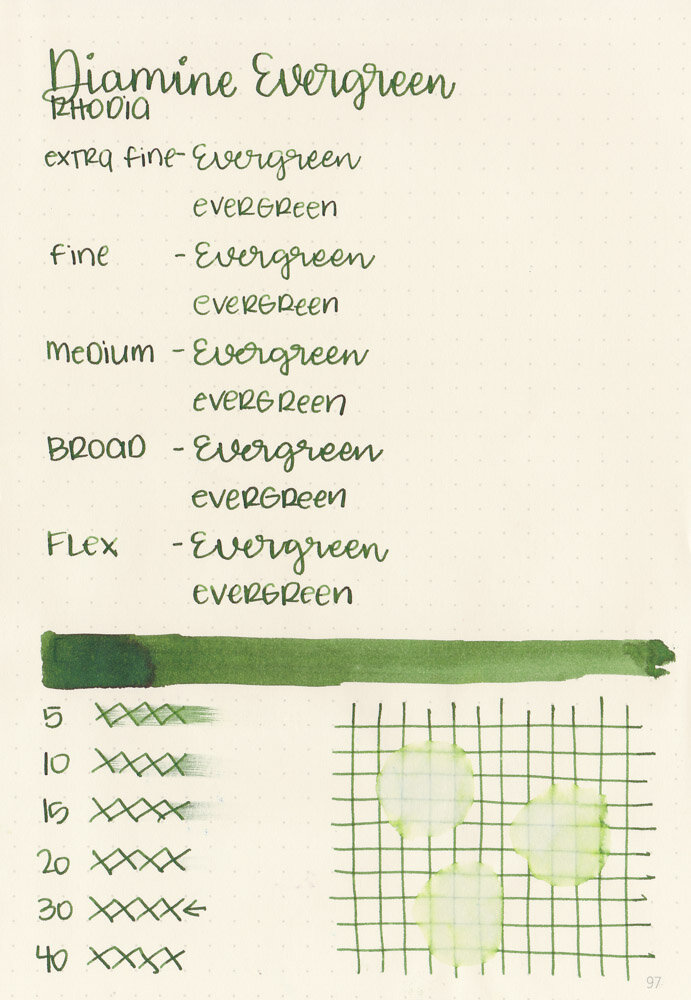 Diamine Evergreen
RHODIA
extra fine - Evergreen
evergreen
fine - Evergreen
evergreen
medium - Evergreen
evergreen
BROAD - Evergreen
evergreen
FLex - Evergreen
evergreen
5 XXXX
10 XXXX
15 XXXX
20 XXXX
30 XXXX←
40 XXXX
97